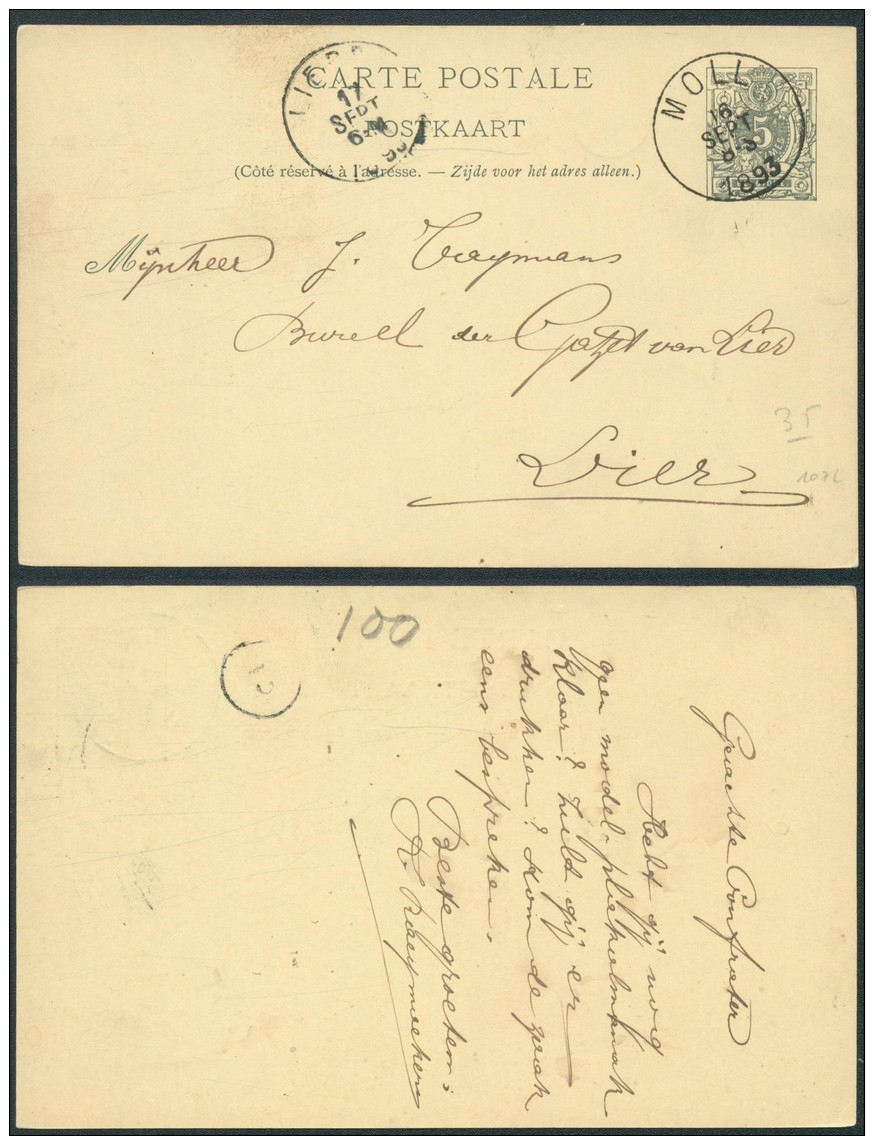 CARTE POSTALE
POSTKAART
(Côté réservé à l'adresse. — Zijde voor het adres alleen.)
LIERRE
17
SEPT
6-M
MOLL
16
SEPT
8-S
1893
5
Mijnheer J. Traeymans
Bureel der Gazet van Lier
Lier
35
107L
100
12
Geachte Confrater
Hebt gij nog
geen model-
klaar? Zult gij er
drukken? Kom de zaak
eens bespreken.
Beste groeten: